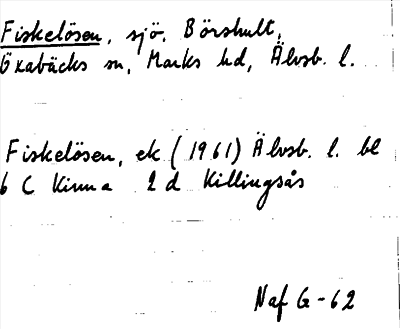 Fiskelösen, sjö, Börshult,
Öxabäcks sn, Marks hd, Älvsb. l.
Fiskelösen, ek (1961) Älvsb. l. bl
6 C Kinna 2 d Killingsås
Naf G-62